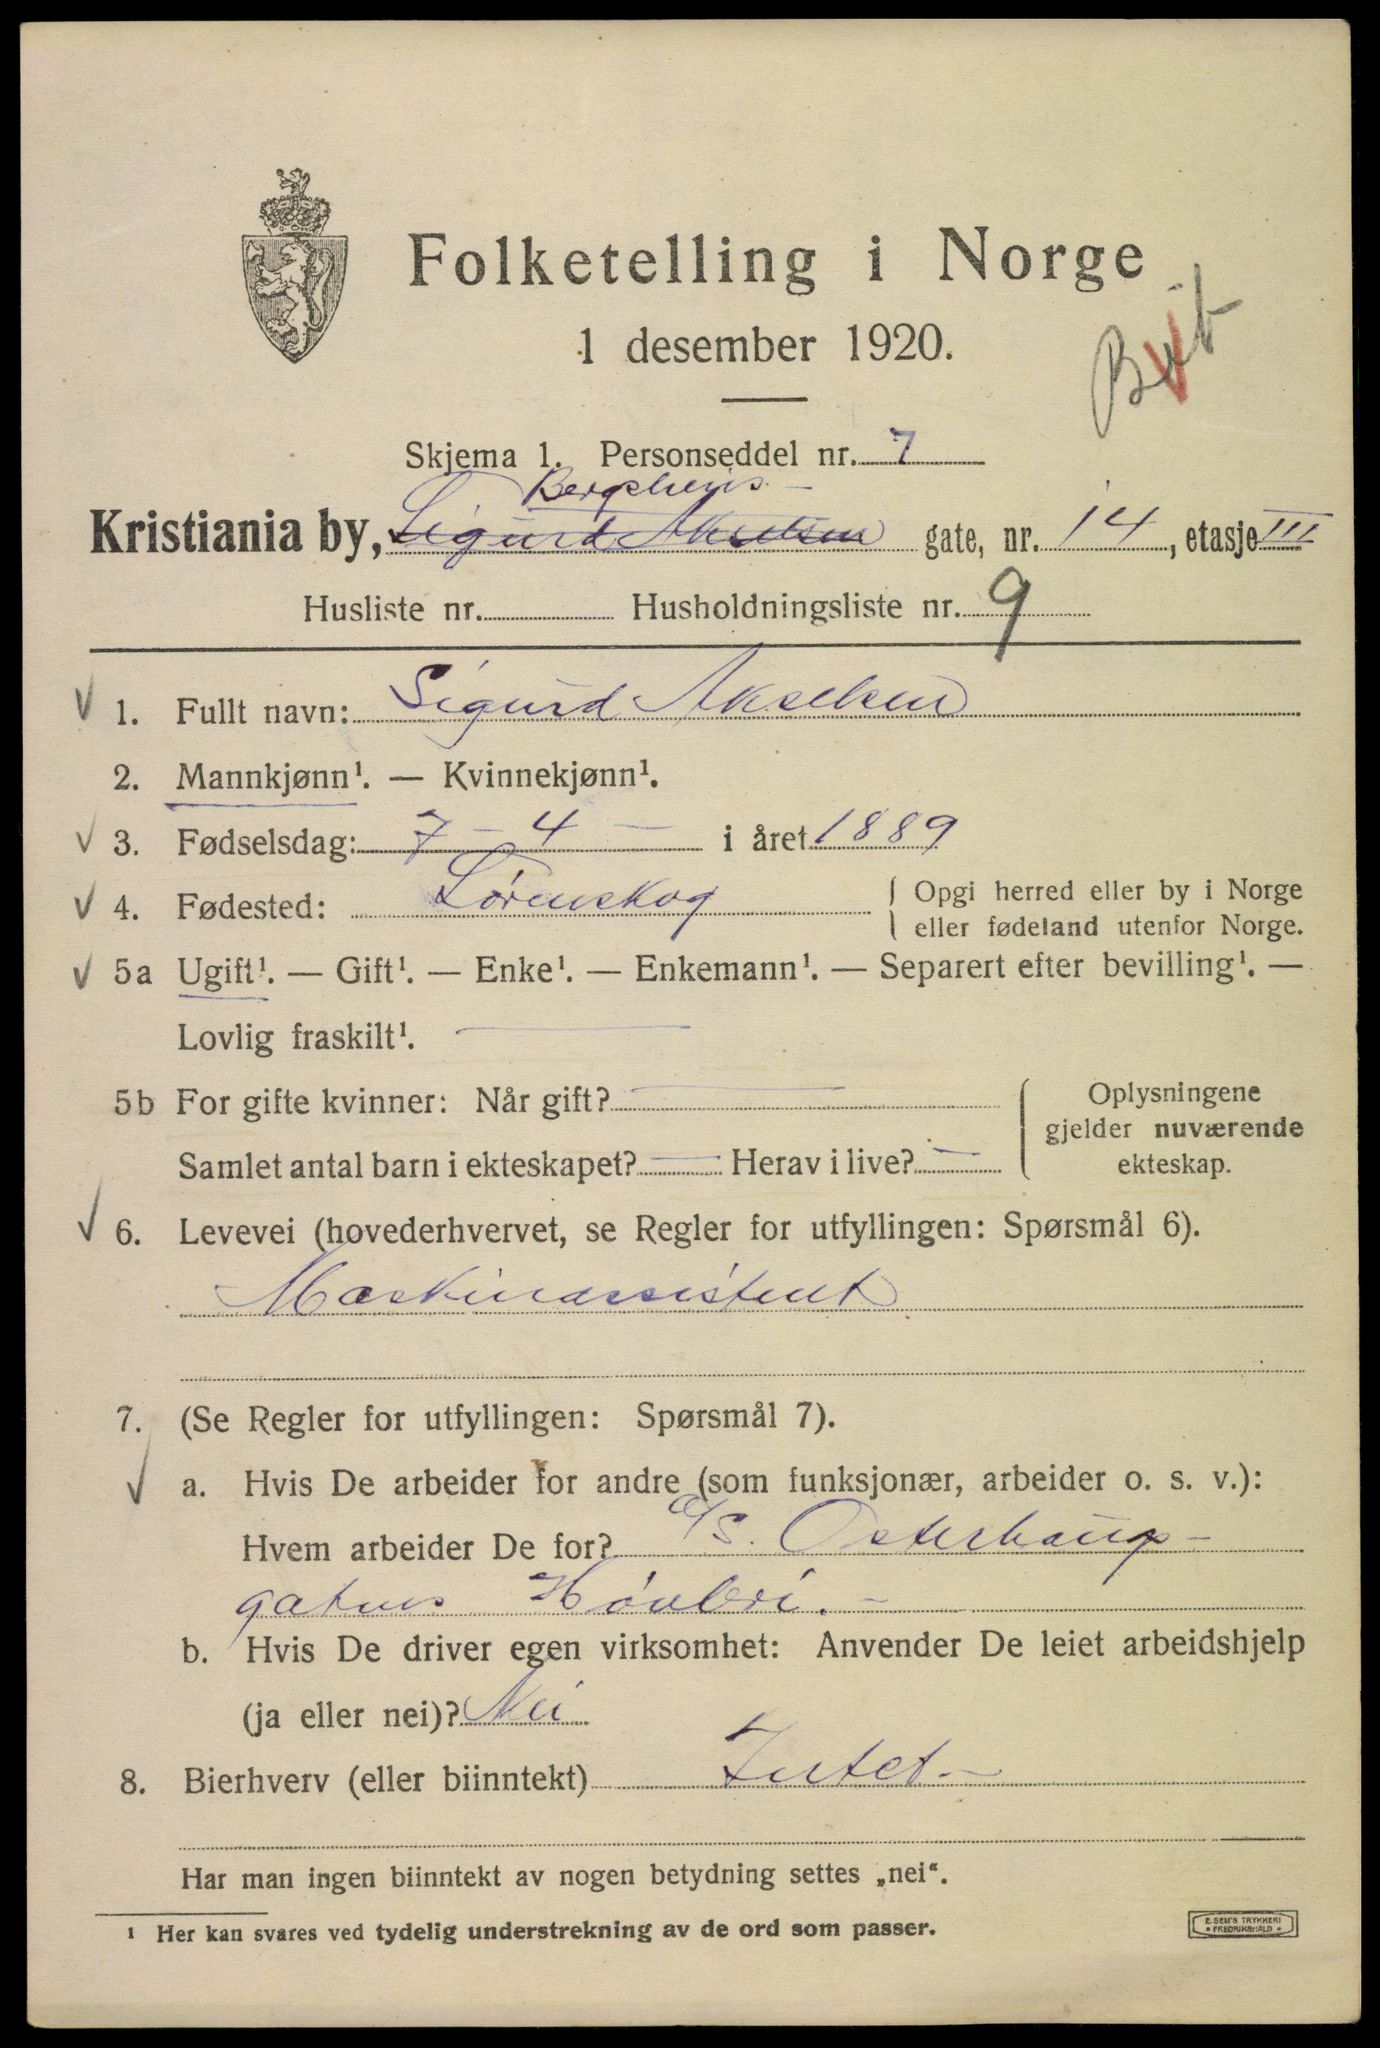 Folketelling i Norge
1 desember 1920.
Skjema 1. Personseddel nr. 7
Bergsliens-
Kristiania by, Sigurd Akselsen gate, nr. 14, etasje III
Husliste nr. Husholdningsliste nr. 9
1. Fullt navn: Sigurd Akselsen
2. Mannkjønn¹. — Kvinnekjønn¹.
3. Fødselsdag: 7 - 4 - i året 1889
4. Fødested: Lørenskog { Opgi herred eller by i Norge
eller fødeland utenfor Norge.
5a Ugift¹. — Gift¹. — Enke¹. — Enkemann¹. — Separert efter bevilling¹. —
Lovlig fraskilt¹.
5b For gifte kvinner: Når gift? { Oplysningene
gjelder nuværende
Samlet antal barn i ekteskapet? — Herav i live? — ekteskap.
6. Levevei (hovederhvervet, se Regler for utfyllingen: Spørsmål 6).
Maskinassistent
7. (Se Regler for utfyllingen: Spørsmål 7).
a. Hvis De arbeider for andre (som funksjonær, arbeider o. s. v.):
Hvem arbeider De for? a/s. Osterhaugs-
gatens Høvleri. -
b. Hvis De driver egen virksomhet: Anvender De leiet arbeidshjelp
(ja eller nei)? Nei
8. Bierhverv (eller biinntekt) Intet -
Har man ingen biinntekt av nogen betydning settes „nei“.
¹ Her kan svares ved tydelig understrekning av de ord som passer.
E. SEM'S TRYKKERI
• FREDRIKSHALD •